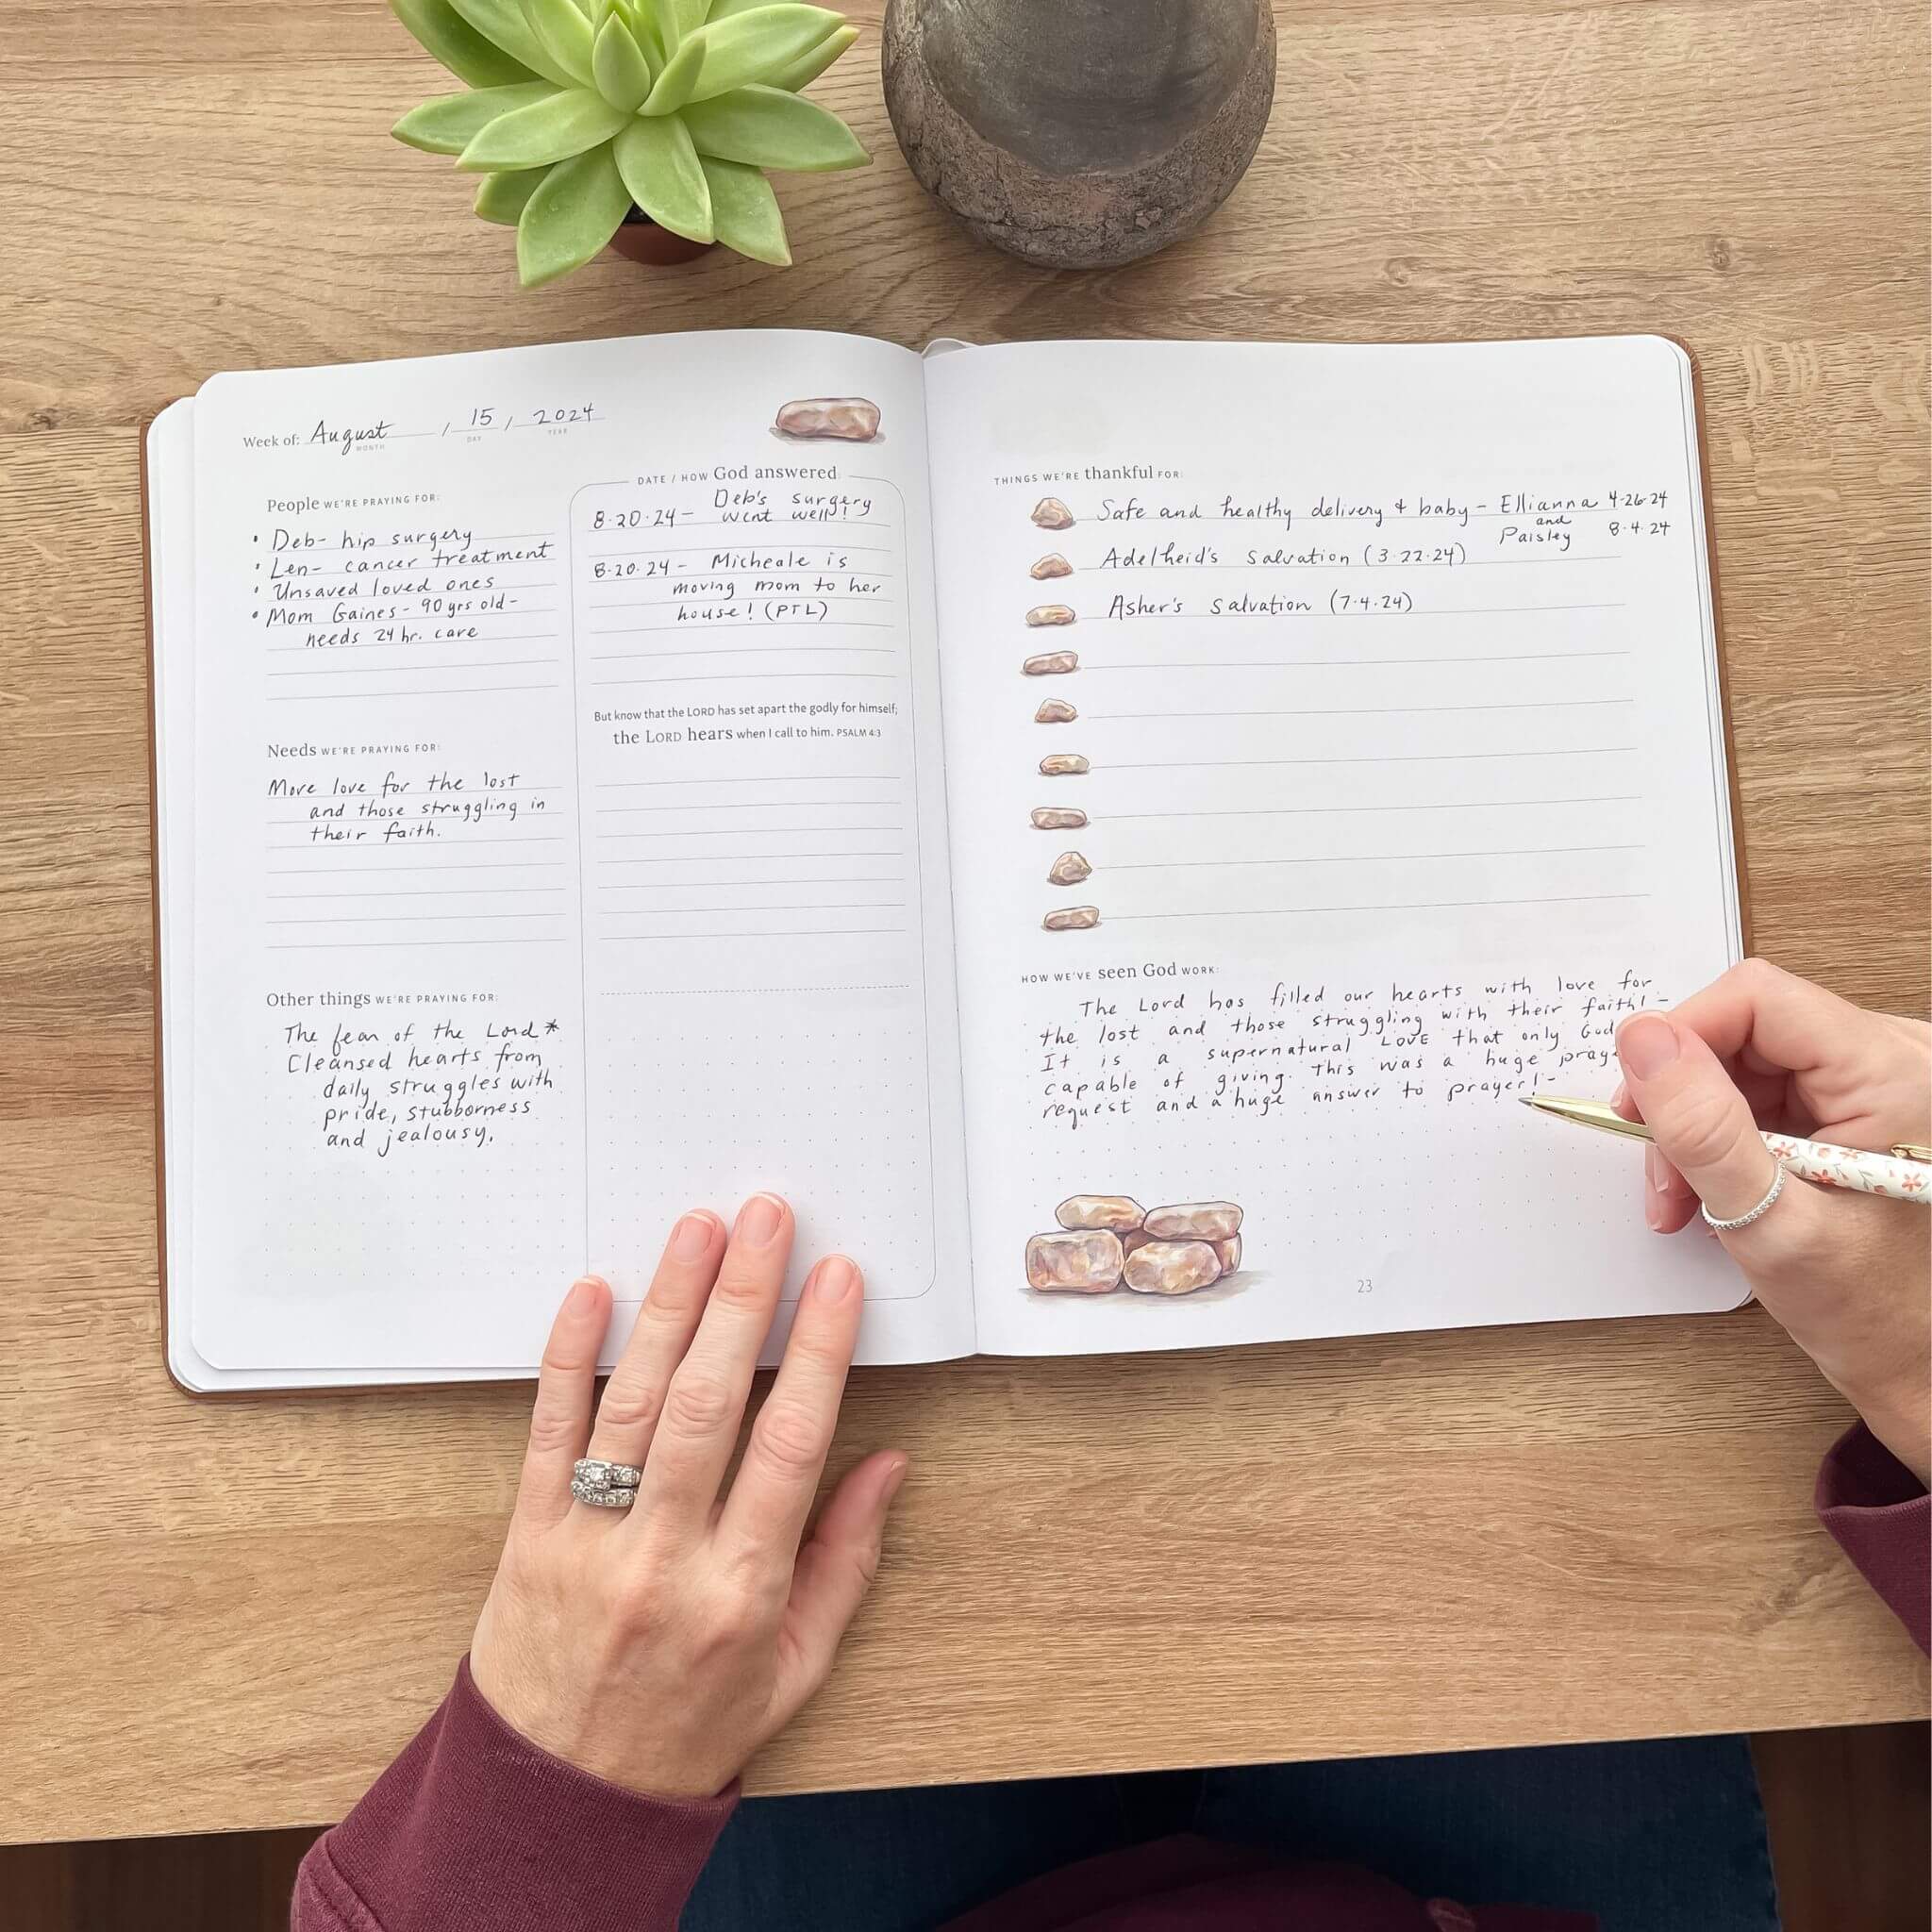 Week of: August / 15 / 2024
MONTH DAY YEAR
People WE'RE PRAYING FOR:
• Deb- hip surgery
• Len- cancer treatment
• Unsaved loved ones
• Mom Gaines- 90 yrs old-
needs 24 hr. care
Needs WE'RE PRAYING FOR:
More love for the lost
and those struggling in
their faith.
Other things WE'RE PRAYING FOR:
The fear of the Lord*
Cleansed hearts from
daily struggles with
pride, stubborness
and jealousy.
DATE / HOW God answered:
Deb's surgery
8-20-24- went well!
8-20-24- Micheale is
moving mom to her
house! (PTL)
But know that the LORD has set apart the godly for himself;
the LORD hears when I call to him. PSALM 4:3
THINGS WE'RE thankful FOR:
Safe and healthy delivery & baby- Ellianna 4-26-24
and
Paisley 8-4-24
Adelheid's salvation (3-22-24)
Asher's salvation (7-4-24)
HOW WE'VE seen God WORK:
The Lord has filled our hearts with love for
the lost and those struggling with their faith! -
It is a supernatural LOVE that only God
capable of giving. This was a huge
request and a huge answer to prayer! -
23